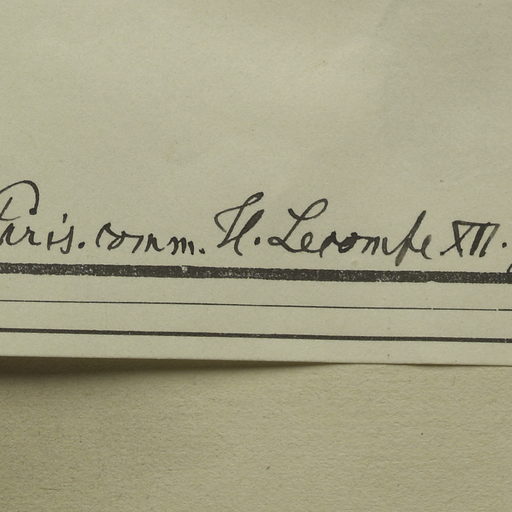 Paris. comm. H. Lecomte XII.